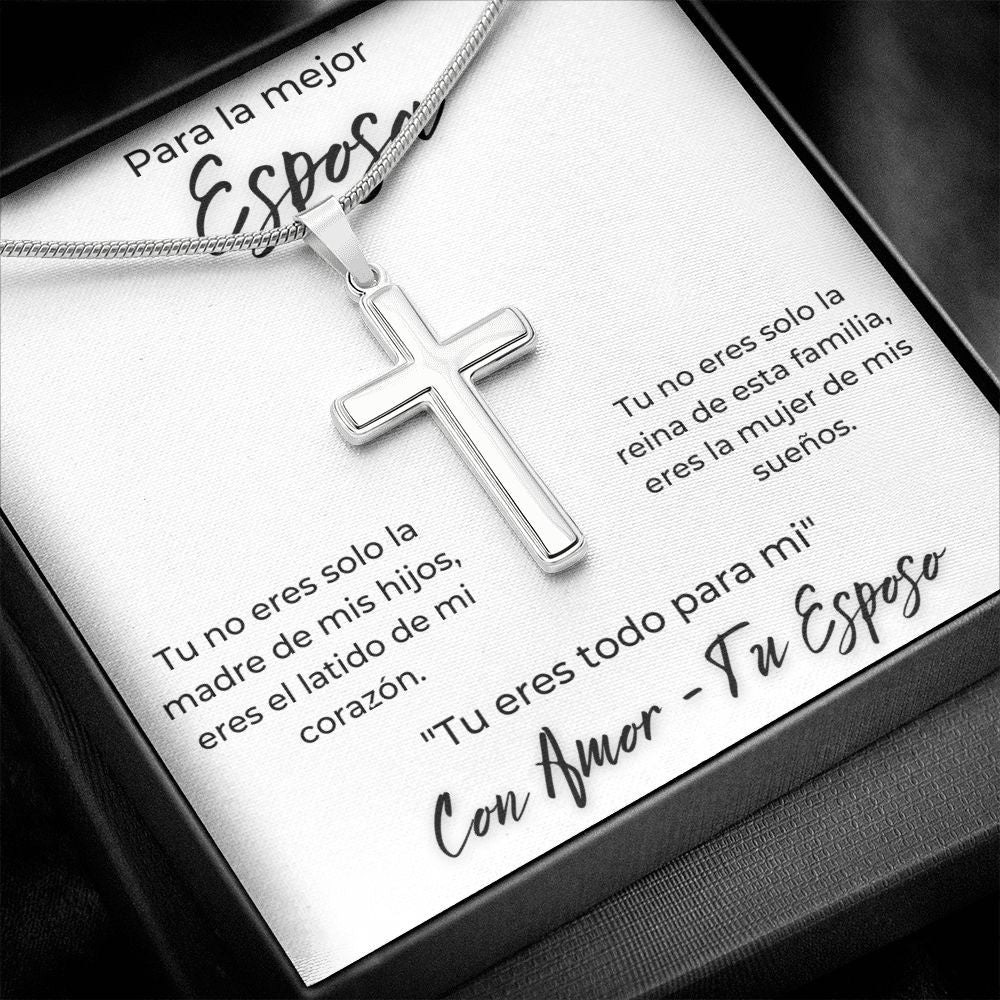 Para la mejor
Esposa
Tu no eres solo la
reina de esta familia,
eres la mujer de mis
sueños.
Tu no eres solo la
madre de mis hijos,
eres el latido de mi
corazón.
"Tu eres todo para mi"
Con Amor - Tu Esposo